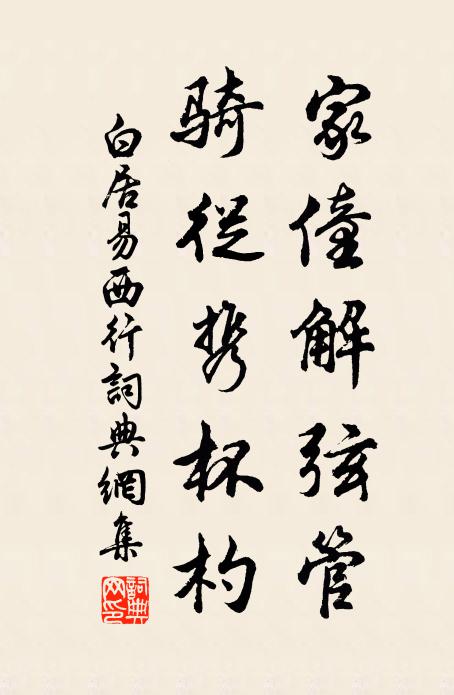 家僮解弦管
骑從携杯杓
白居易西行詞典網集
詞典网印